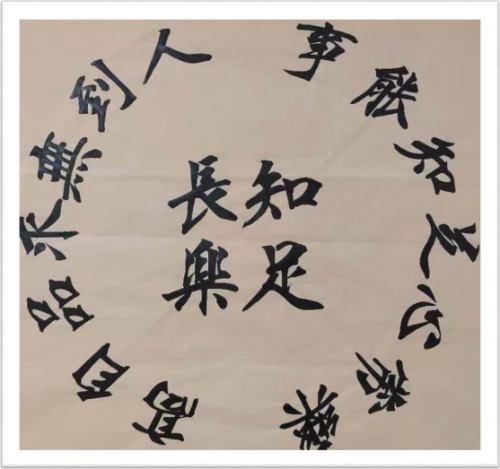 事能知足心常樂
人到無求品自高
知足
長樂